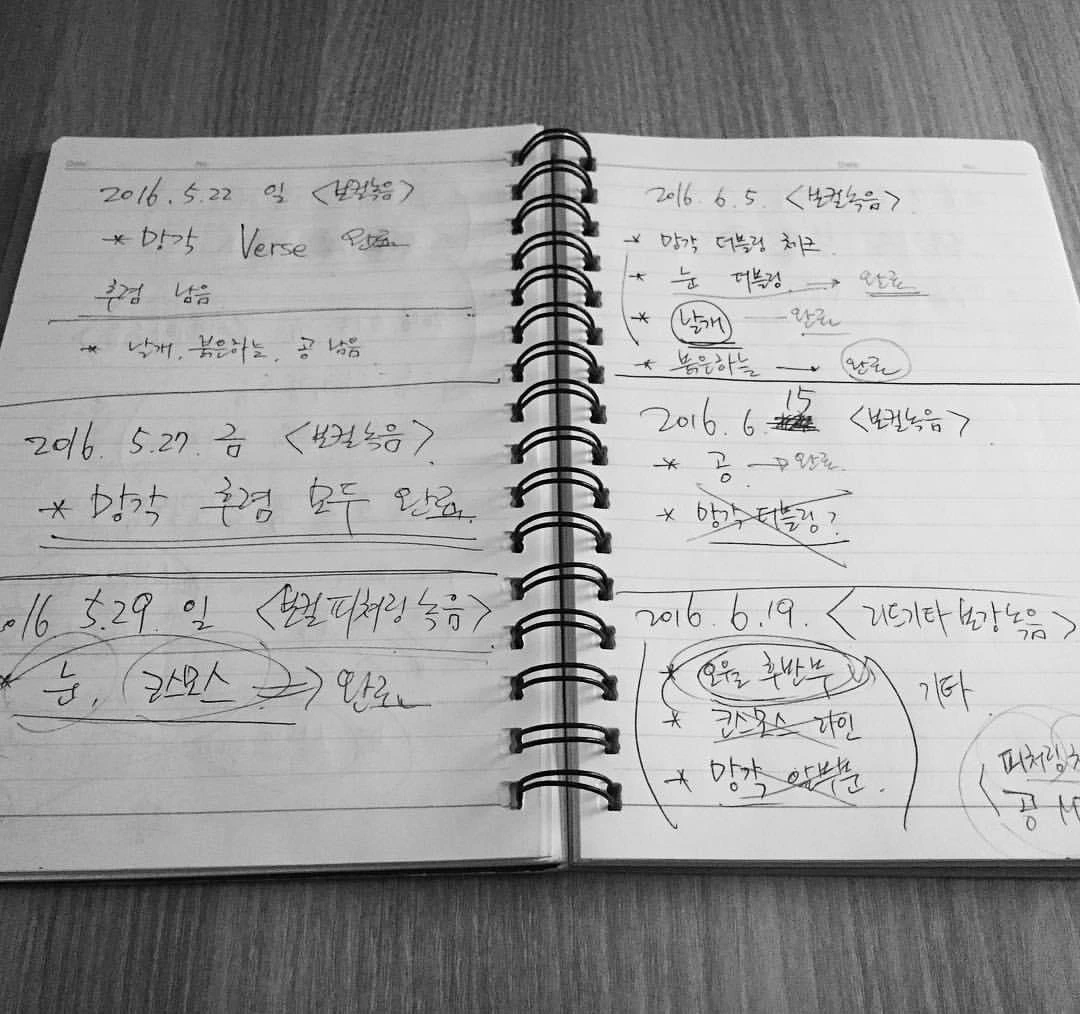 Date. No.
2016. 5.22 일 <보컬녹음>
* 망각 Verse 완료
후렴 남음
* 날개, 붉은하늘, 공 남음
2016. 5.27. 금 <보컬녹음>
* 망각 후렴 모두 완료.
016 5.29. 일 <보컬피쳐링녹음>
* 눈, 코스모스 => 완료
Date. No.
2016. 6. 5. <보컬녹음>
* 망각 더블링 체크.
* 눈 더블링. → 완료
* 날개 — 완료
* 붉은하늘 → 완료
2016. 6. 15 <보컬녹음>
* 공 → 완료.
* 망각 더블링?
2016. 6.19. <리드기타 보강녹음>
* 오월 후반부
* 코스모스 라인
* 망각 앞부분.
기타
<피쳐링
공